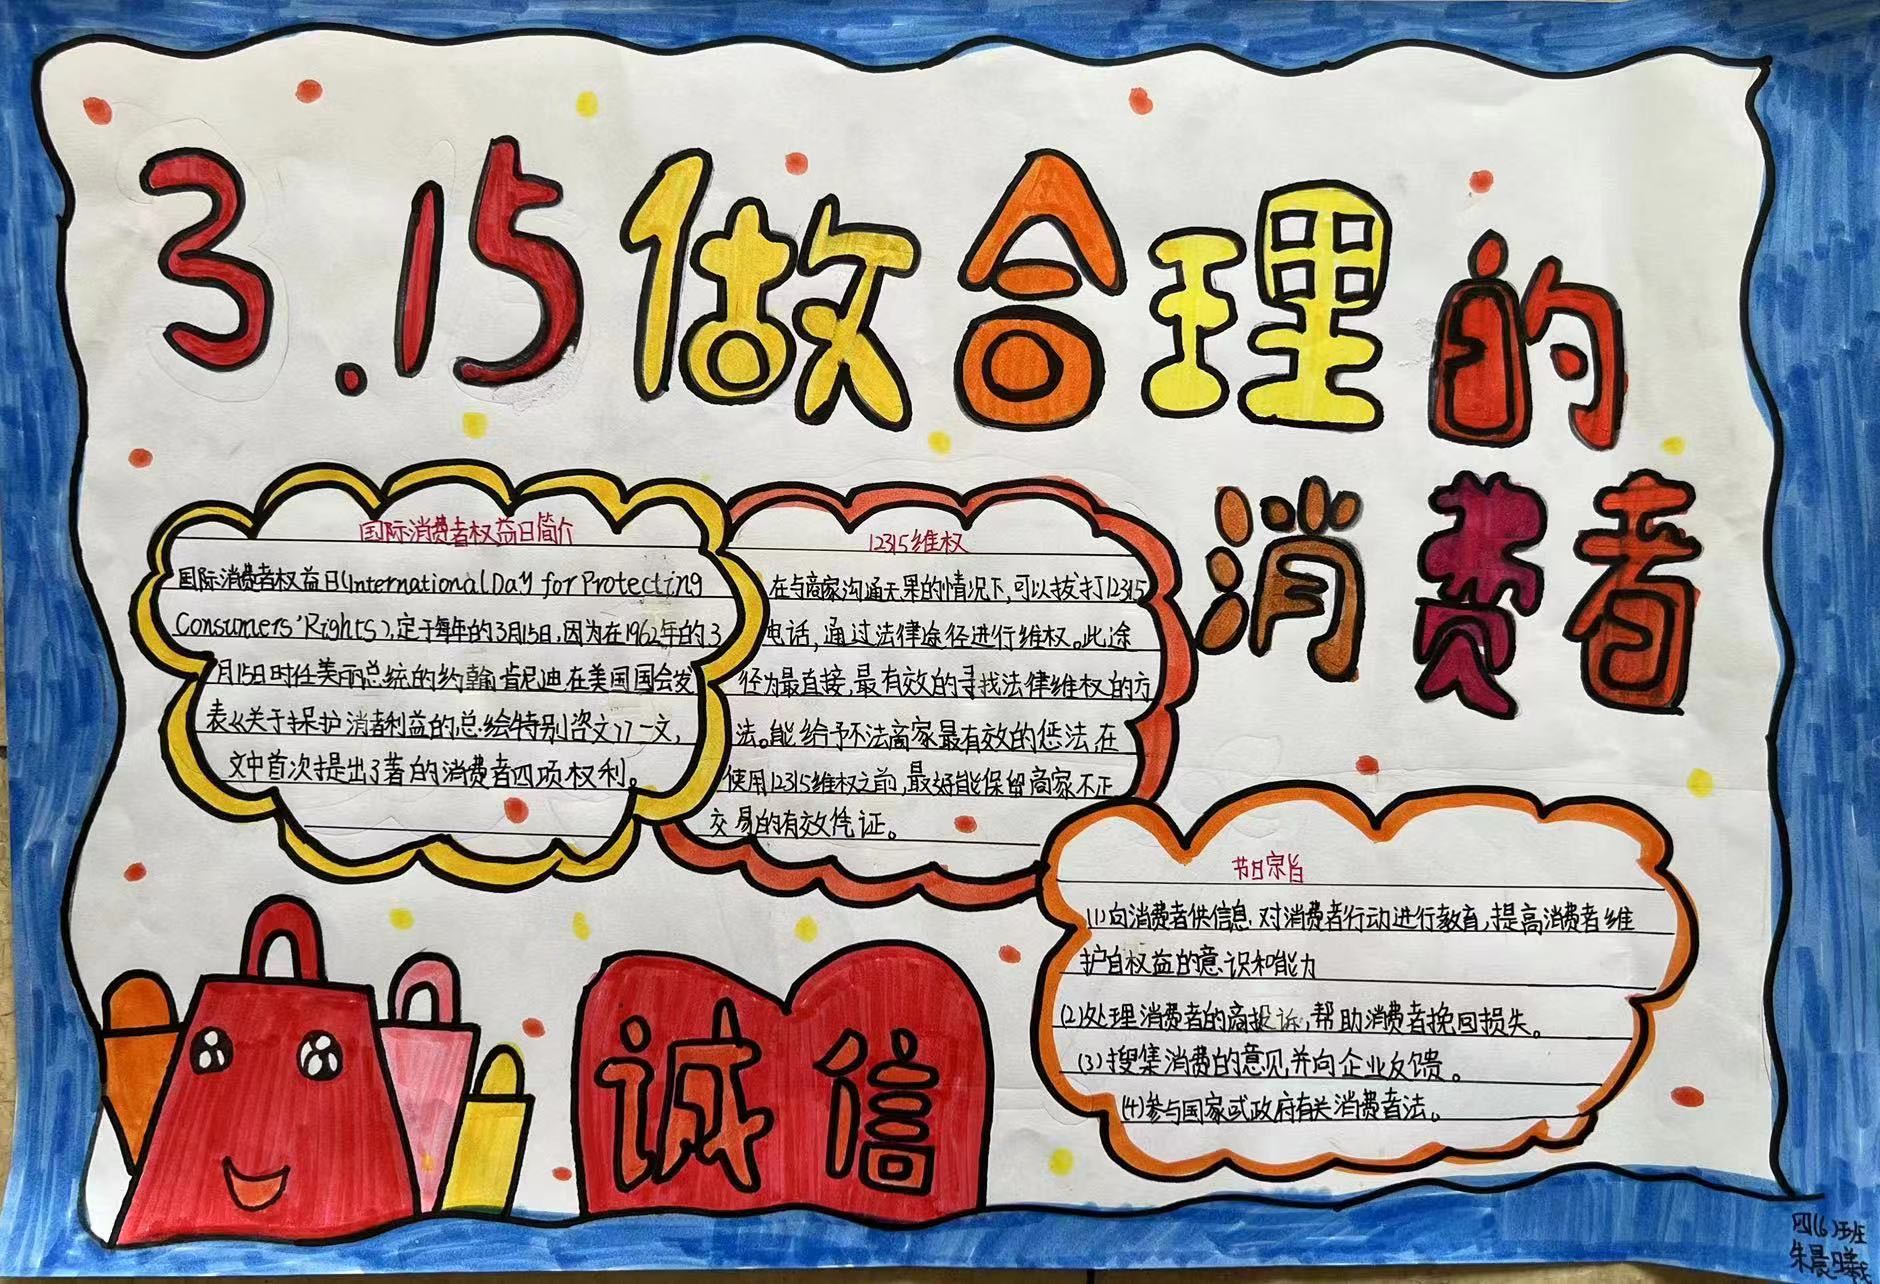 3.15做合理的
消费者
国际消费者权益日简介
国际消费者权益日(International Day for Protecting
Consumers'Rights),定于每年的3月15日,因为在1962年的3
月15日时任美丽总统的约翰肯尼迪在美国国会发
表《关于保护消者利益的总绘特别咨文》一文,
文中首次提出了著的消费者四项权利。
12315维权
在与商家沟通无果的情况下,可以拔打12315
电话,通过法律途径进行维权。此途
径为最直接,最有效的寻找法律维权的方
法。能给予不法商家最有效的惩法,在
使用12315维权之前,最好能保留商家不正
交易的有效凭证。
节日宗旨
(1)向消费者供信息,对消费者行动进行教育,提高消费者维
护自权益的意识和能力
(2)处理消费者的商投诉,帮助消费者挽回损失。
(3)搜集消费的意见,并向企业反馈。
(4)参与国家或政府有关消费者法。
诚信
四(6)班
朱晨